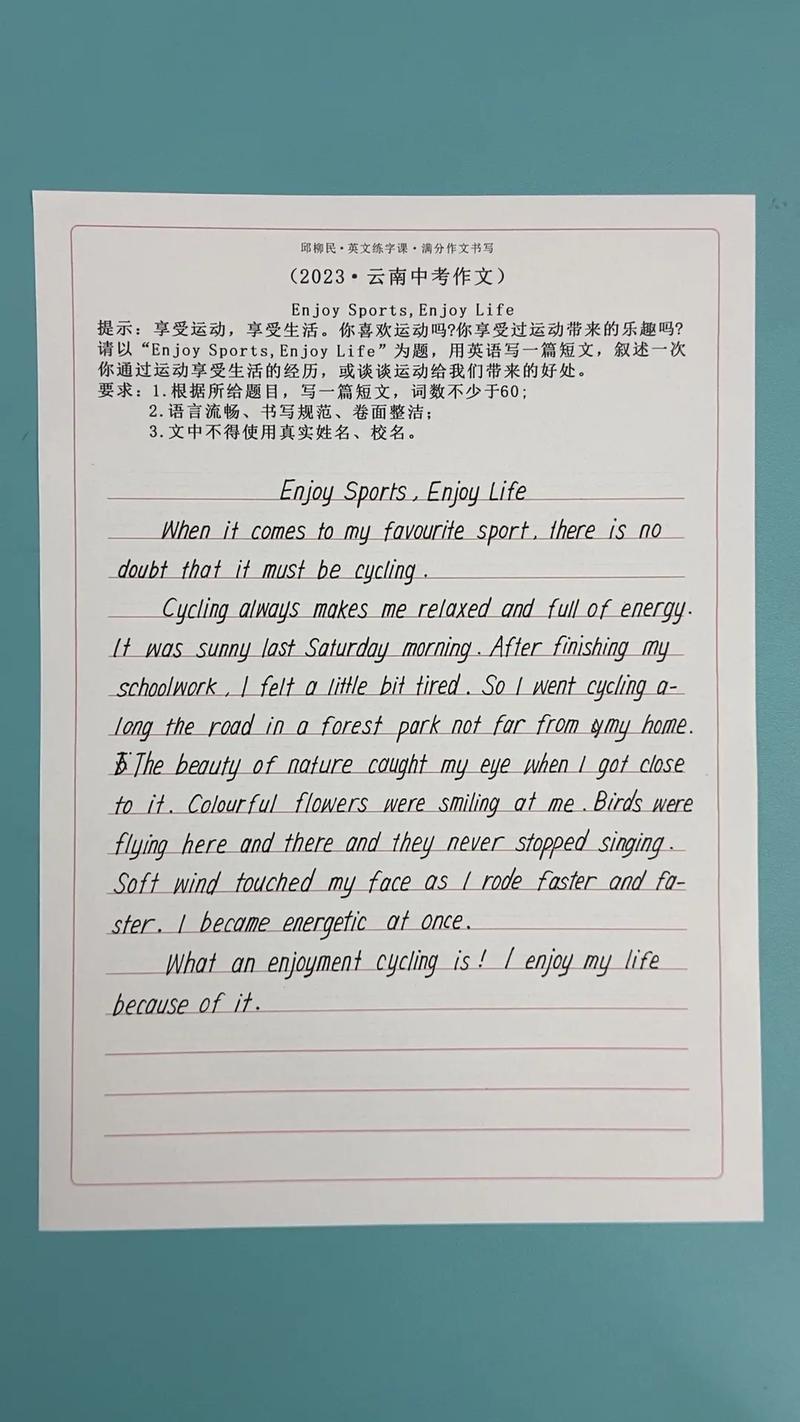 邱柳民·英文练字课·满分作文书写
（2023·云南中考作文）
Enjoy Sports,Enjoy Life
提示：享受运动，享受生活。你喜欢运动吗?你享受过运动带来的乐趣吗?
请以“Enjoy Sports,Enjoy Life”为题，用英语写一篇短文，叙述一次
你通过运动享受生活的经历，或谈谈运动给我们带来的好处。
要求：1.根据所给题目，写一篇短文，词数不少于60;
2.语言流畅、书写规范、卷面整洁;
3.文中不得使用真实姓名、校名。
Enjoy Sports, Enjoy Life
When it comes to my favourite sport, there is no
doubt that it must be cycling.
Cycling always makes me relaxed and full of energy.
It was sunny last Saturday morning. After finishing my
schoolwork, I felt a little bit tired. So I went cycling a-
long the road in a forest park not far from my home.
The beauty of nature caught my eye when I got close
to it. Colourful flowers were smiling at me. Birds were
flying here and there and they never stopped singing.
Soft wind touched my face as I rode faster and fa-
ster. I became energetic at once.
What an enjoyment cycling is! I enjoy my life
because of it.